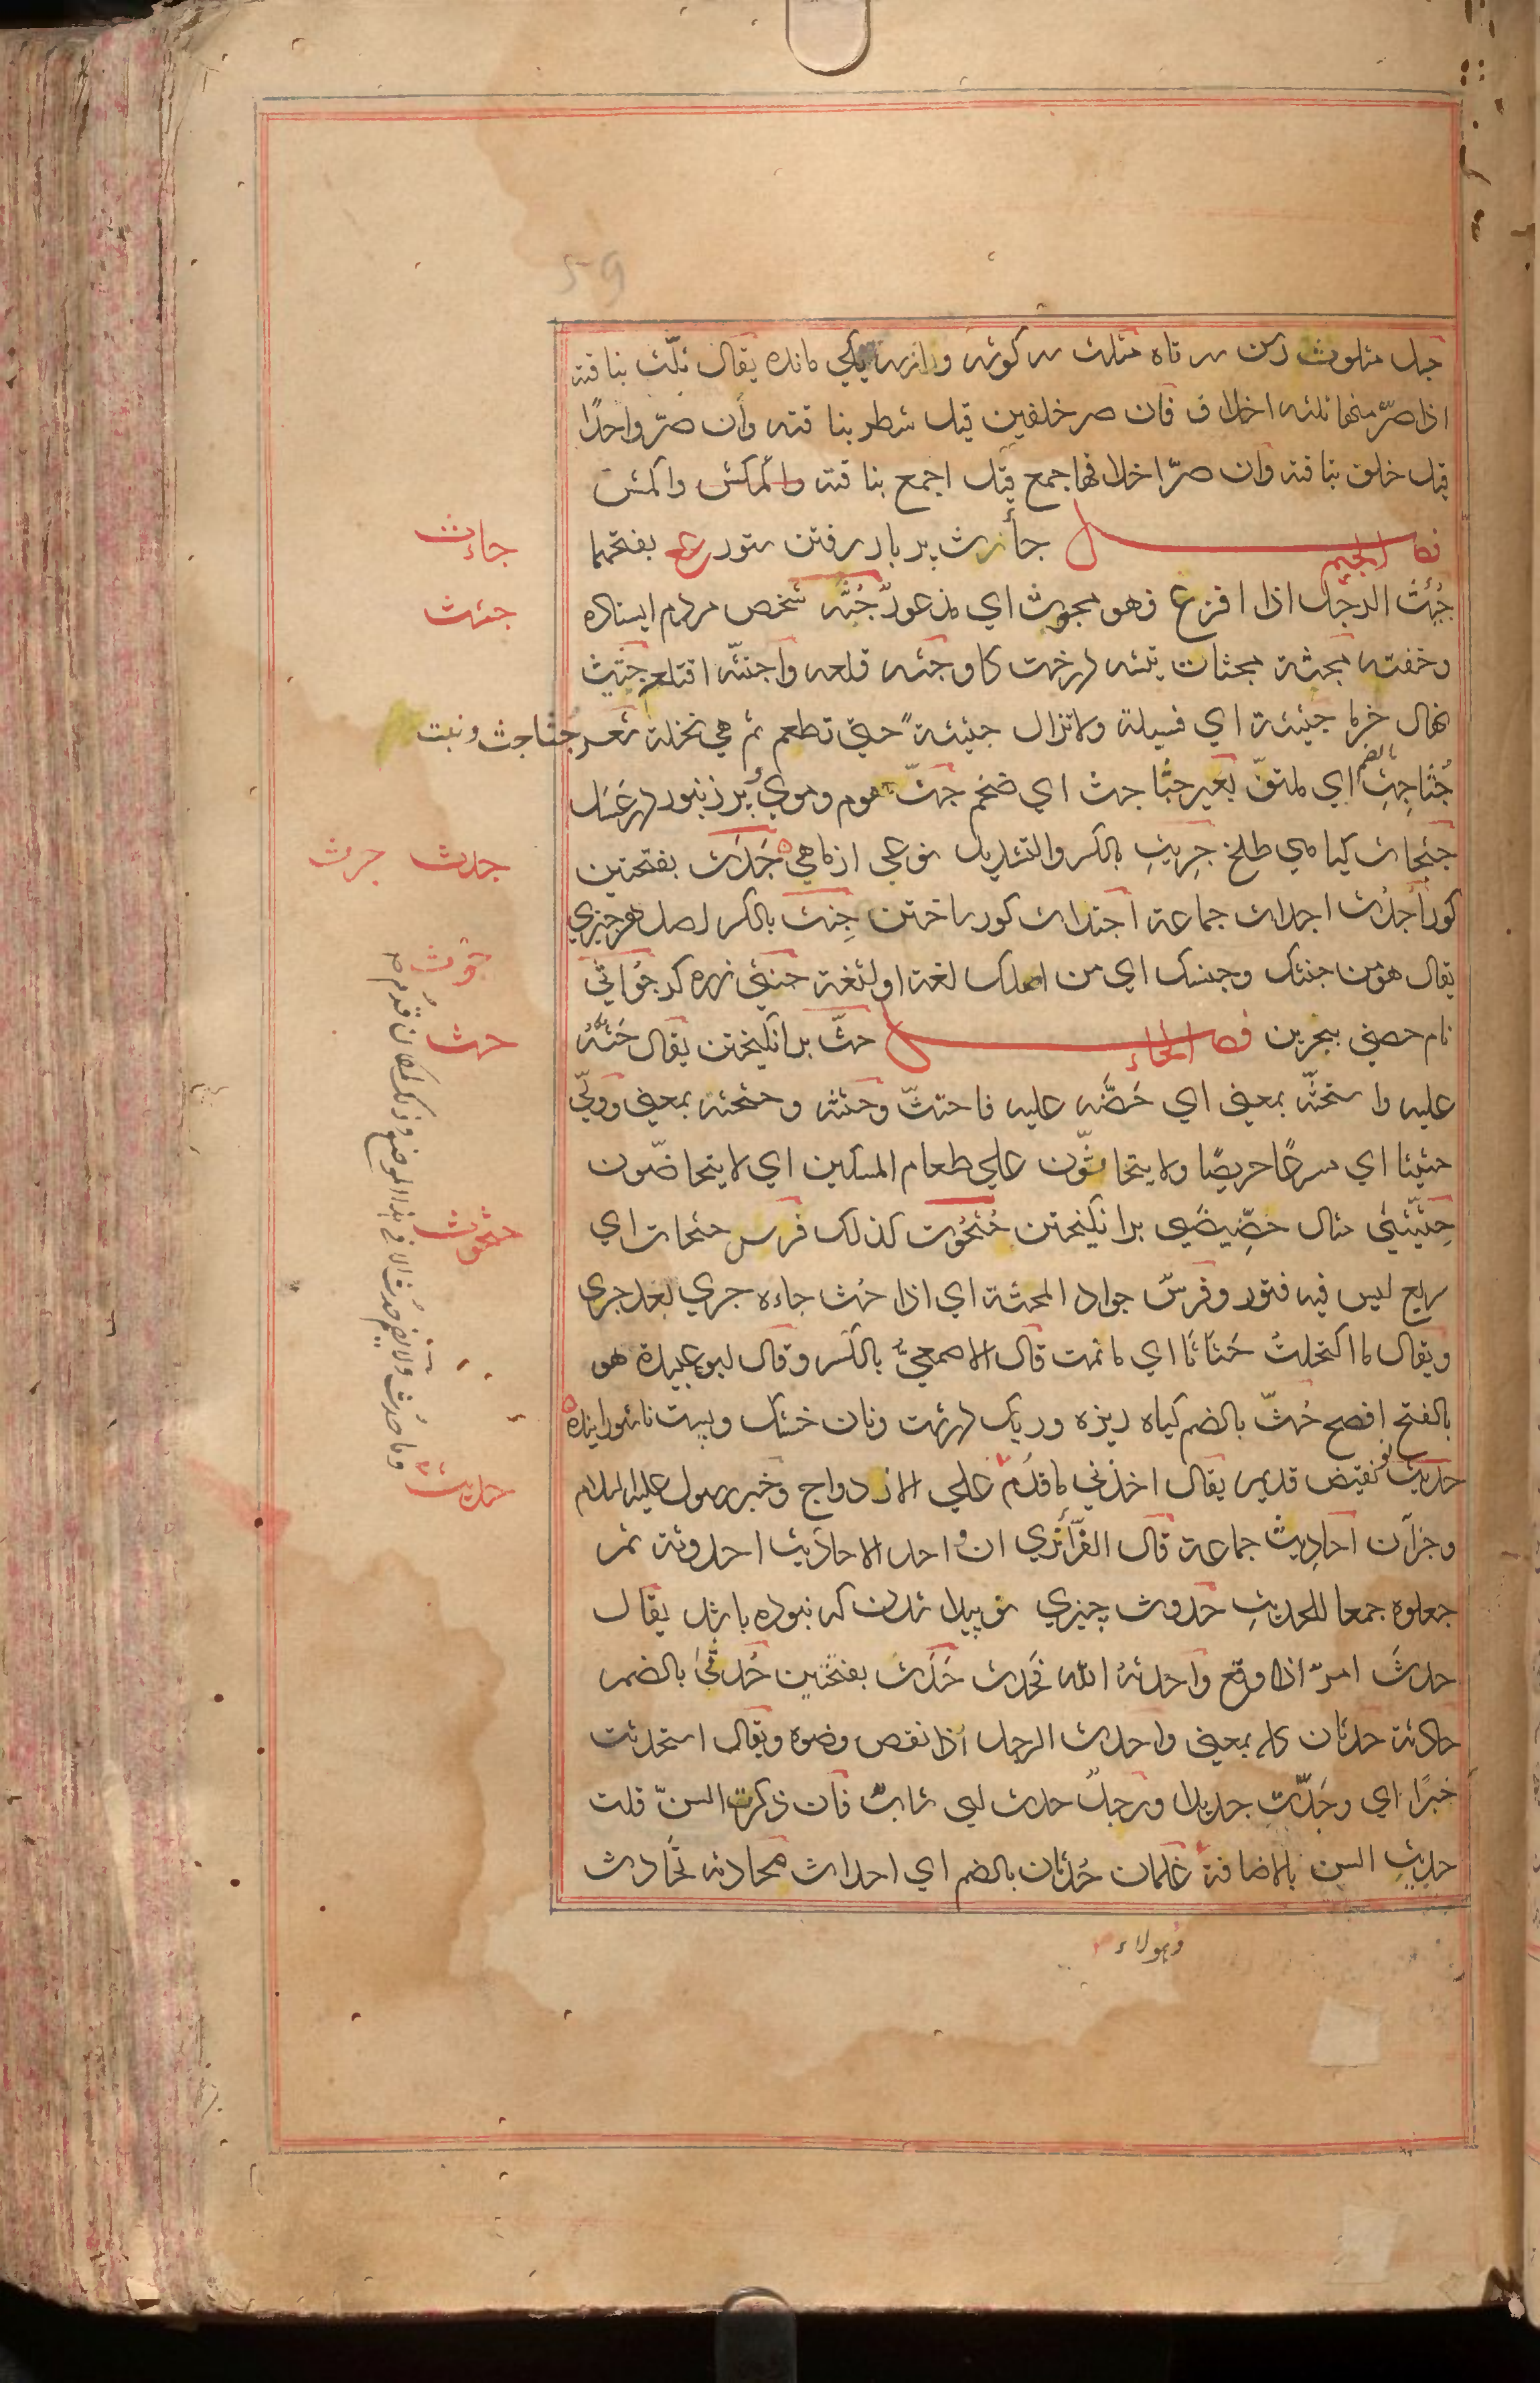 59
حبل مثلوث رسن سه تاه مثلث سه کوشه واز سه یکی مانده یقال ثلّث بناقته
اذا صرّ منها ثلثه اخلاف فان صر خلفین قیل شطر بناقته وان صرّ واحدًا
قیل خلف بناقته وان صرّ اخلافها جمع قیل اجمع بناقته
فصل الجیم جأث بر بار رفتن ستور بفتحهما
جاءث
جُئِثَ الرجل اذا افزع فهو مجوث ای مذعور جُثّه شخص مردم ایستاده
جئث
وخفته مجثة مجثاث تیشه درخت کاو جثه قلعه واجتثّه اقتلعه جثیث
نهال خرما جثیثة ای فسیلة ولاتزال جثیثةً حتی تطعم ثم هی نخلة شعر جثاجث ونبت
جُثَاجِث بالضم ای ملتفّ بعیر جثاجث ای ضخم جثّ موم وموی و پر زنبور در عسل
جثجاث کیاهی طلخ جِرِّیث بالکسر والتشدید نوعی از ماهی جَدَث بفتحتین
جدث جرث
کور اجدُث اجداث جماعة اجتداث کور ساختن جِنث بالکسر اصل هر چیزی
یقال هو من جنثک وجنسک ای من اصلک لغة او لثغة جنثی زره کر جُواثی
جوث
نام حصنی ببحرین فصل الحاء حثّ برانکیختن یقال حَثَّهُ
حث
علیه واستحثّه بمعنی ای حَضَّه علیه فاحتثّ وحثثه وحثحثه بمعنی وولّی
حثیثا ای مسرعًا حریصًا ولا یتحاثّون علی طعام المسکین ای لا یتحاضّون
حِثّیثی مثال خِصّیصی برانکیختن حُثحُوث کذلک فرس حثحاث ای
حثحوث
سریع لیس فیه فتور وفرسٌ جواد المحثة ای اذا حُث جاءه جری بعد جری
ویقال ما اکتحلتُ حَثَاثًا ای ما نمت قال الاصمعیُّ بالکسر وقال ابو عبیدة هو
بالفتح افصح حُثّ بالضم کیاه ریزه وریک درشت ونان خشک وپست ناشورانیده
حدیث نو نقیض قدیم یقال اخذنی ما قدُم علی الازدواج وخبر رسول علیه السلام
حدیث
وجز آن احادیث جماعة قال الفرّاء نری ان واحد الاحادیث احدوثة ثم
جعلوه جمعا للحدیث حدوث چیزی نو پیدا شدن که نبوده باشد یقال
حدثَ امرٌ اذا وقع واحدثهُ الله فحدث حَدَث بفتحتین حُدثی بالضم
حادثة حدثان کله بمعنی واحدث الرجل اذا نقص وضوه ویقال استحدثت
خبرًا ای وجَدّت جدیدا ورجلٌ حدث ای شابٌ فان ذکرت السنّ قلت
حدیث السن بالاضافة غلمان حُدثان بالضم ای احداث محادثه تحادث
وهولاء